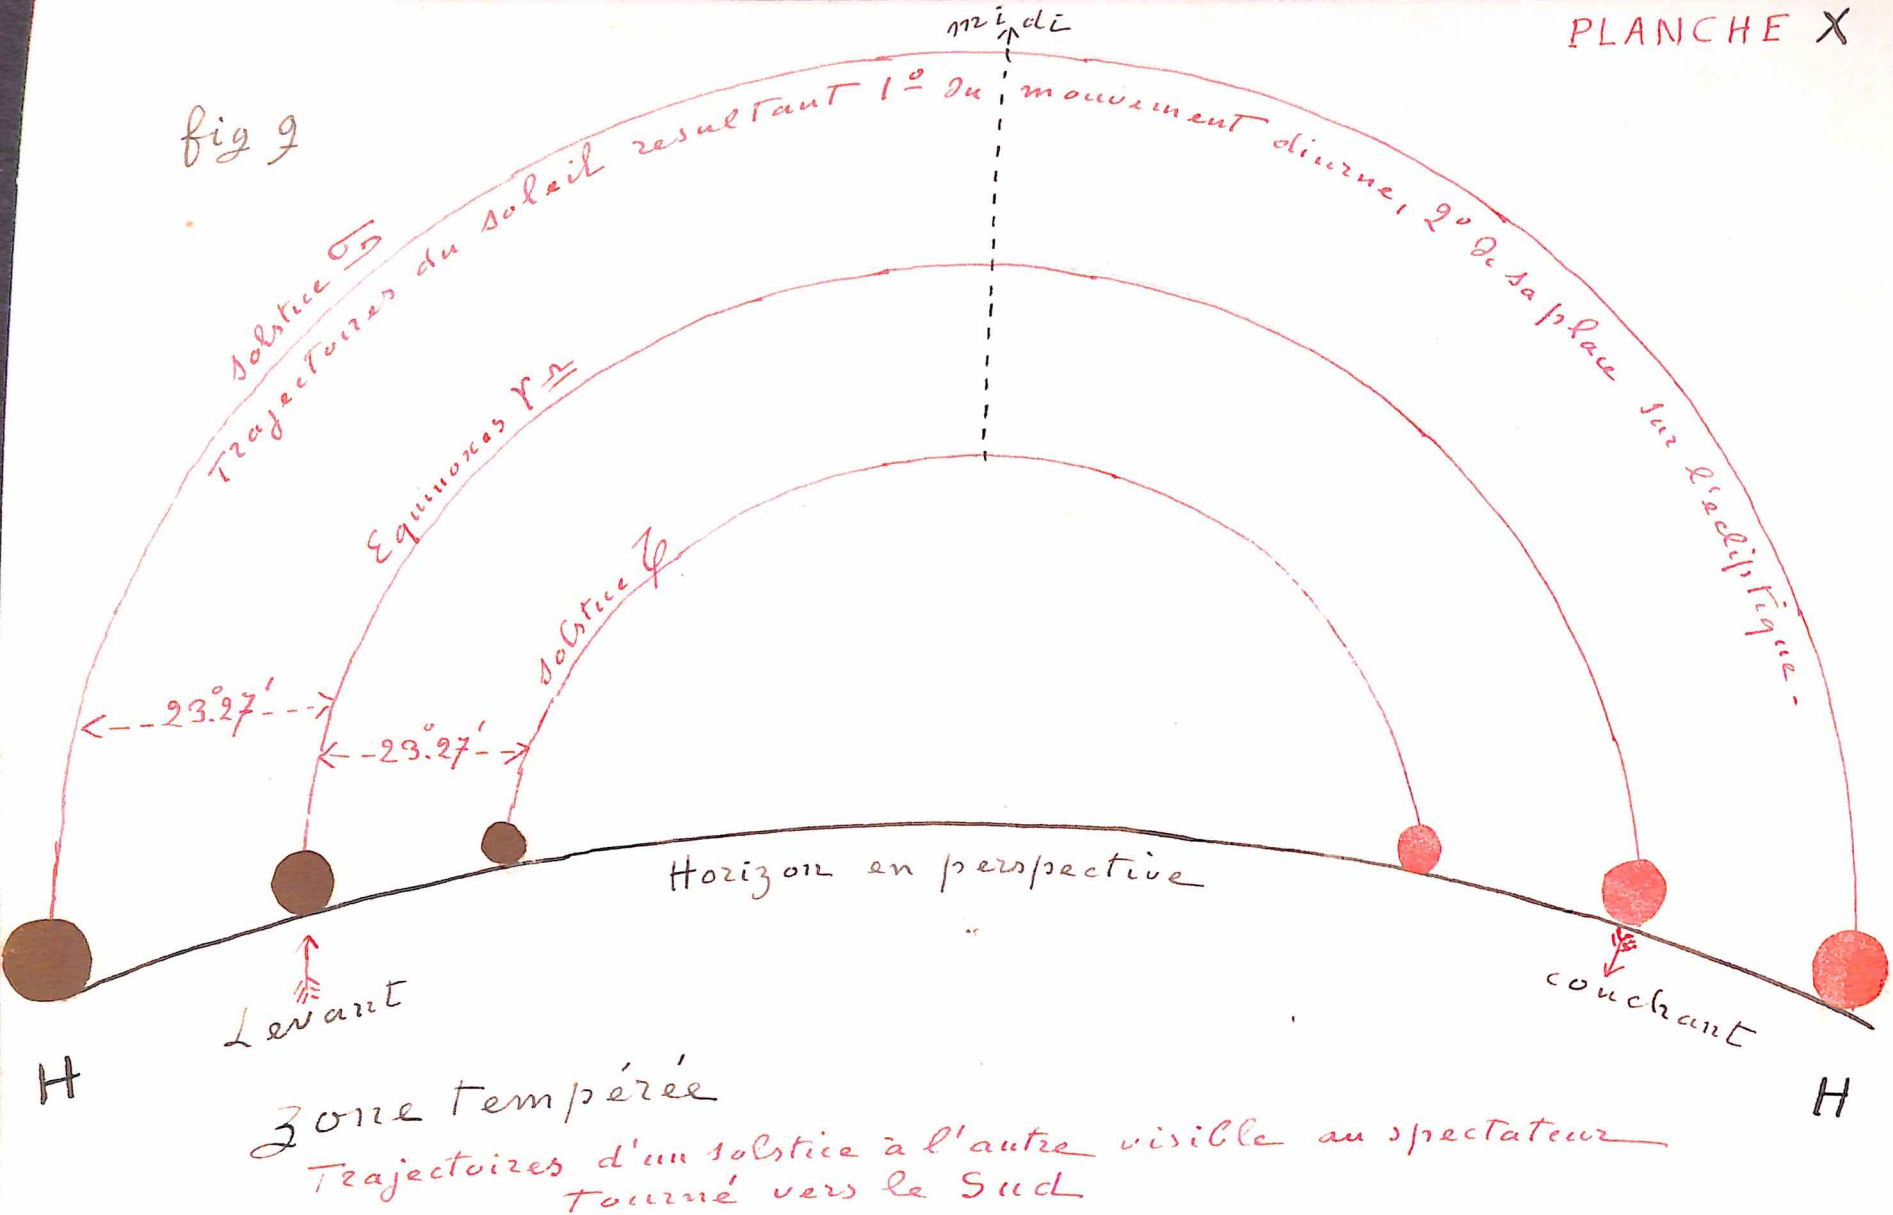 PLANCHE X
midi
fig 9
solstice ♋
Trajectoires du soleil resultant 1º du mouvement diurne, 2º de sa place sur l'écliptique -
Equinoxes ♈ ♎
solstice ♑
23.°27'
23.°27'
Horizon en perspective
Levant
couchant
H
H
zone tempérée
Trajectoires d'un solstice à l'autre visible au spectateur
Tourné vers le Sud